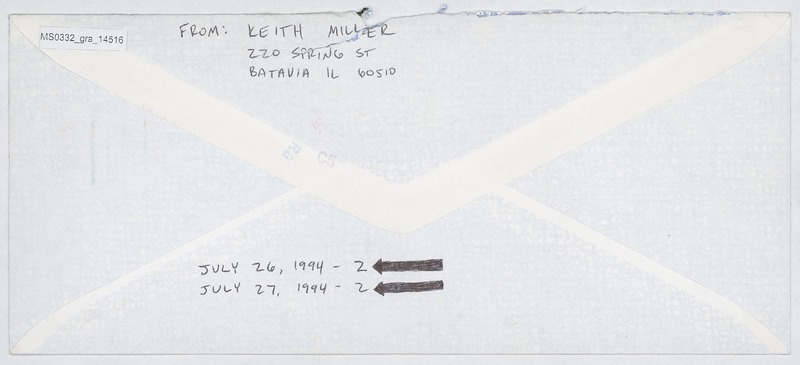 MS0332_gra_14516
FROM: KEITH MILLER
220 SPRING ST
BATAVIA IL 60510
JULY 26, 1994 - 2
JULY 27, 1994 - 2